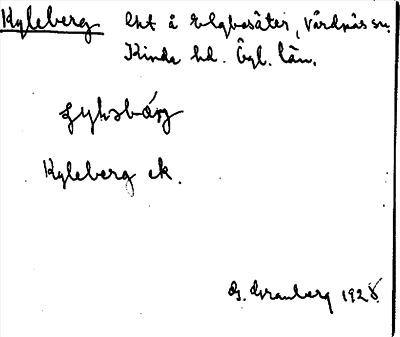 Kyleberg lht å Elgbosäter, Vårdnäs sn.
Kinda hd. Ögl. län.
Kyleberg ek.
G. Granberg 1928